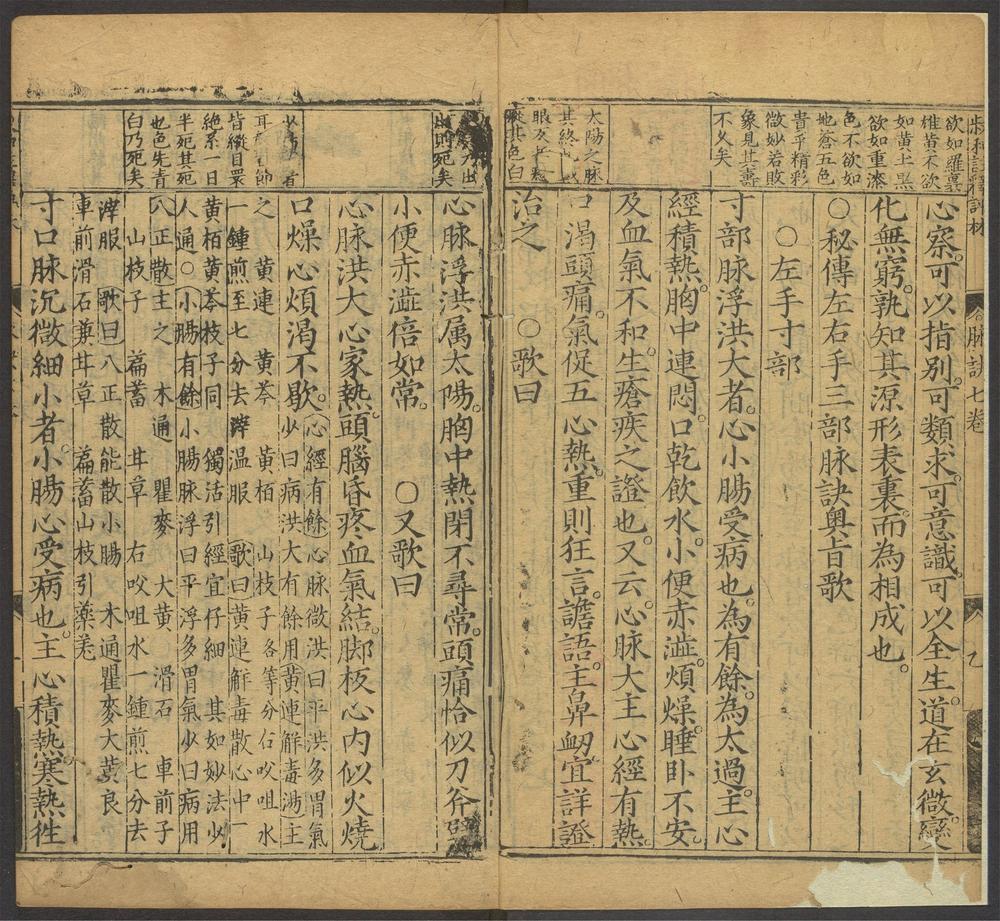 欲如羅裹
雄黃不欲
如黃土黑
欲如重漆
色不欲如
地蒼五色
貴乎精彩
微妙若敗
象見其壽
不久矣
太陽之脉
其終也
眼反
其色白
心察可以指別可類求可意識可以全生道在玄微變
化無窮孰知其源形表裏而為相成也
○秘傳左右手三部脉訣奧旨歌
○左手寸部
寸部脉浮洪大者心小腸受病也為有餘為太過主心
經積熱胸中連悶口乾飲水小便赤澁煩燥睡卧不安
及血氣不和生瘡疾之證也又云心脉大主心經有熱
口渴頭痛氣促五心熱重則狂言譫語主鼻衂宜詳證
治之　○歌曰
脉訣七卷
八
乙
出
則死矣
者
耳
節
皆縱目睘
絶系一日
半死其死
也色先青
白乃死矣
心脉浮洪属太陽胸中熱閉不尋常頭痛恰似刀斧
小便赤澁倍如常　○又歌曰
心脉洪大心家熱頭腦昏疼血氣結脚板心内似火燒
口燥心煩渴不歇心經有餘心脉微洪曰平洪多胃氣
少曰病洪大有餘用黄連解毒湯主
之　黄連　黄芩　黄栢　山枝子各等分右㕮咀水
一鍾煎至七分去滓温服　歌曰黄連解毒散心中一
黄栢黄芩枝子同　獨活引經宜仔細　其如妙法少
人通○小腸有餘小腸脉浮曰平浮多胃氣少曰病用
八正散主之　木通　瞿麥　大黄　滑石　車前子
山枝子　萹蓄　甘草　右㕮咀水一鍾煎七分去
滓服　歌曰八正散能散小腸　木通瞿麥大黄良
車前滑石蓂甘草　萹蓄山枝引薬羌
寸口脉沉微細小者小腸心受病也主心積熱寒熱徃